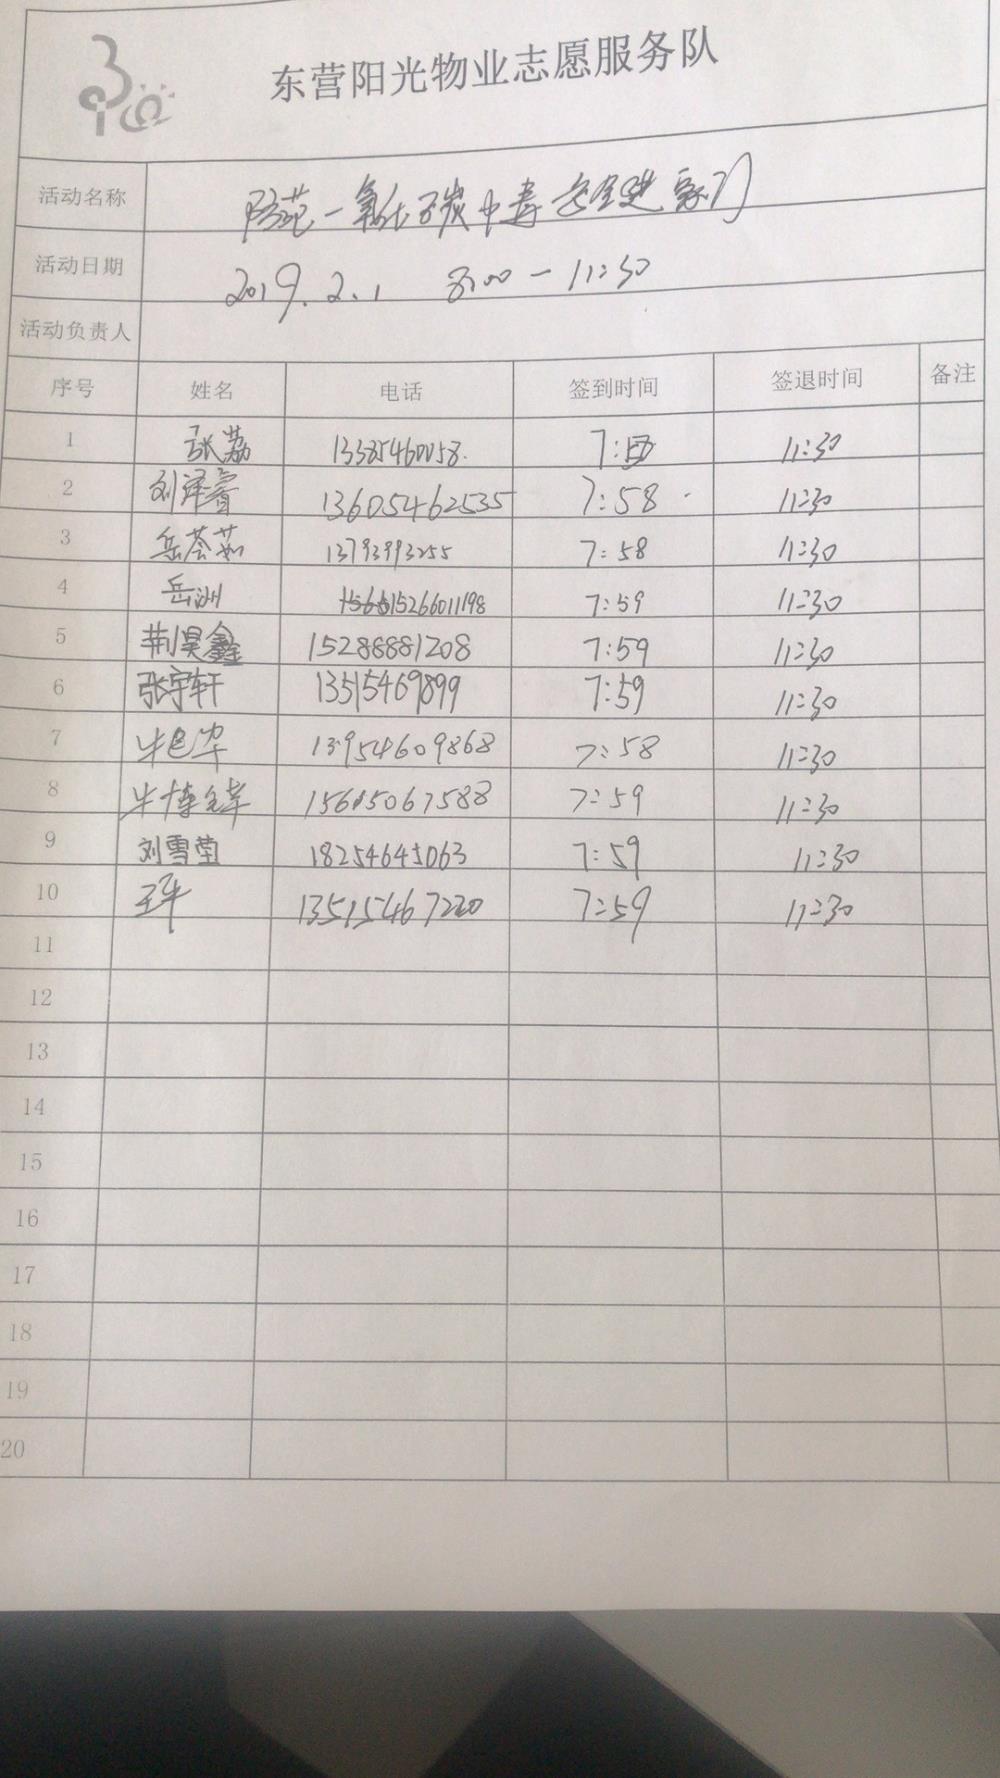 东营阳光物业志愿服务队
活动名称 防范一氧化碳中毒安全进家门
活动日期 2019.2.1 8:00-11:30
活动负责人
序号 姓名 电话 签到时间 签退时间 备注
1 张荔 13385460058. 7:58 11:30
2 刘泽睿 13605462535 7:58 11:30
3 岳荟茹 13793993255 7:58 11:30
4 岳洲 15266011198 7:59 11:30
5 荆昊鑫 15288881208 7:59 11:30
6 张宇轩 13515469899 7:59 11:30
7 13954609868 7:58 11:30
8 15615067588 7:59 11:30
9 刘雪莹 18254645063 7:59 11:30
10 13515467220 7:59 11:30
11
12
13
14
15
16
17
18
19
20